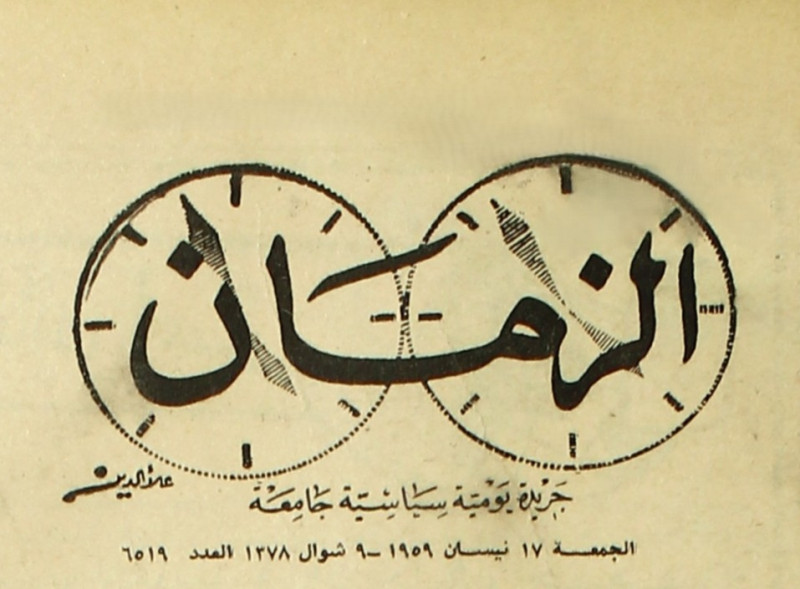 الزمان
علاء الدين
جريدة يومية سياسية جامعة
الجمعة ١٧ نيسان ١٩٥٩ -٩ شوال ١٣٧٨ العدد ٦٥١٩